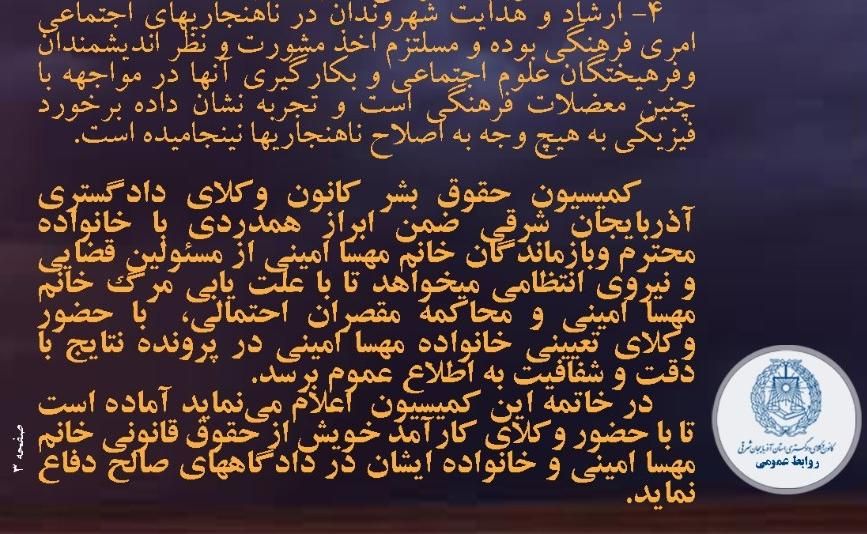 ۴- ارشاد و هدایت شهروندان در ناهنجاریهای اجتماعی
امری فرهنگی بوده و مسلتزم اخذ مشورت و نظر اندیشمندان
وفرهیختگان علوم اجتماعی و بکارگیری آنها در مواجهه با
چنین معضلات فرهنگی است و تجربه نشان داده برخورد
فیزیکی به هیچ وجه به اصلاح ناهنجاریها نینجامیده است.
کمیسیون حقوق بشر کانون وکلای دادگستری
آذربایجان شرقی ضمن ابراز همدردی با خانواده
محترم وبازماندگان خانم مهسا امینی از مسئولین قضایی
و نیروی انتظامی میخواهد تا با علت یابی مرگ خانم
مهسا امینی و محاکمه مقصران احتمالی، با حضور
وکلای تعیینی خانواده مهسا امینی در پرونده نتایج با
دقت و شفافیت به اطلاع عموم برسد.
در خاتمه این کمیسیون اعلام می‌نماید آماده است
تا با حضور وکلای کارآمد خویش از حقوق قانونی خانم
مهسا امینی و خانواده ایشان در دادگاههای صالح دفاع
نماید.
کانون وکلای دادگستری استان آذربایجان شرقی
روابط عمومی
صفحه ۳